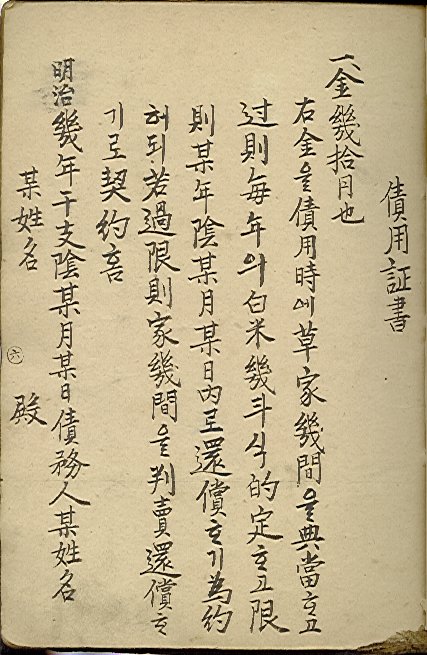 債用証書
一、金幾拾円也
右金을債用時에草家幾間을典當ᄒᆞ고
过則每年의白米幾斗식的定ᄒᆞ고限
則某年陰某月某日內로還償ᄒᆞ기為約
ᄒᆞ되若過限則家幾間을判賣還償ᄒᆞ
기로契約홈
明治幾年干支陰某月某日債務人某姓名
某姓名 殿
六